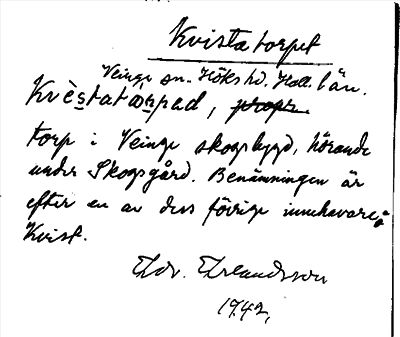 Kvistatorpet
Veinge sn. Höks hd. Hall. län.
Kvèstatårpad, propr
torp i Veinge skogsbygd, hörande
under Skogsgård. Benämningen är
efter en av dess förrige innehavare
Kvist.
Edv. Erlandsson
1942,